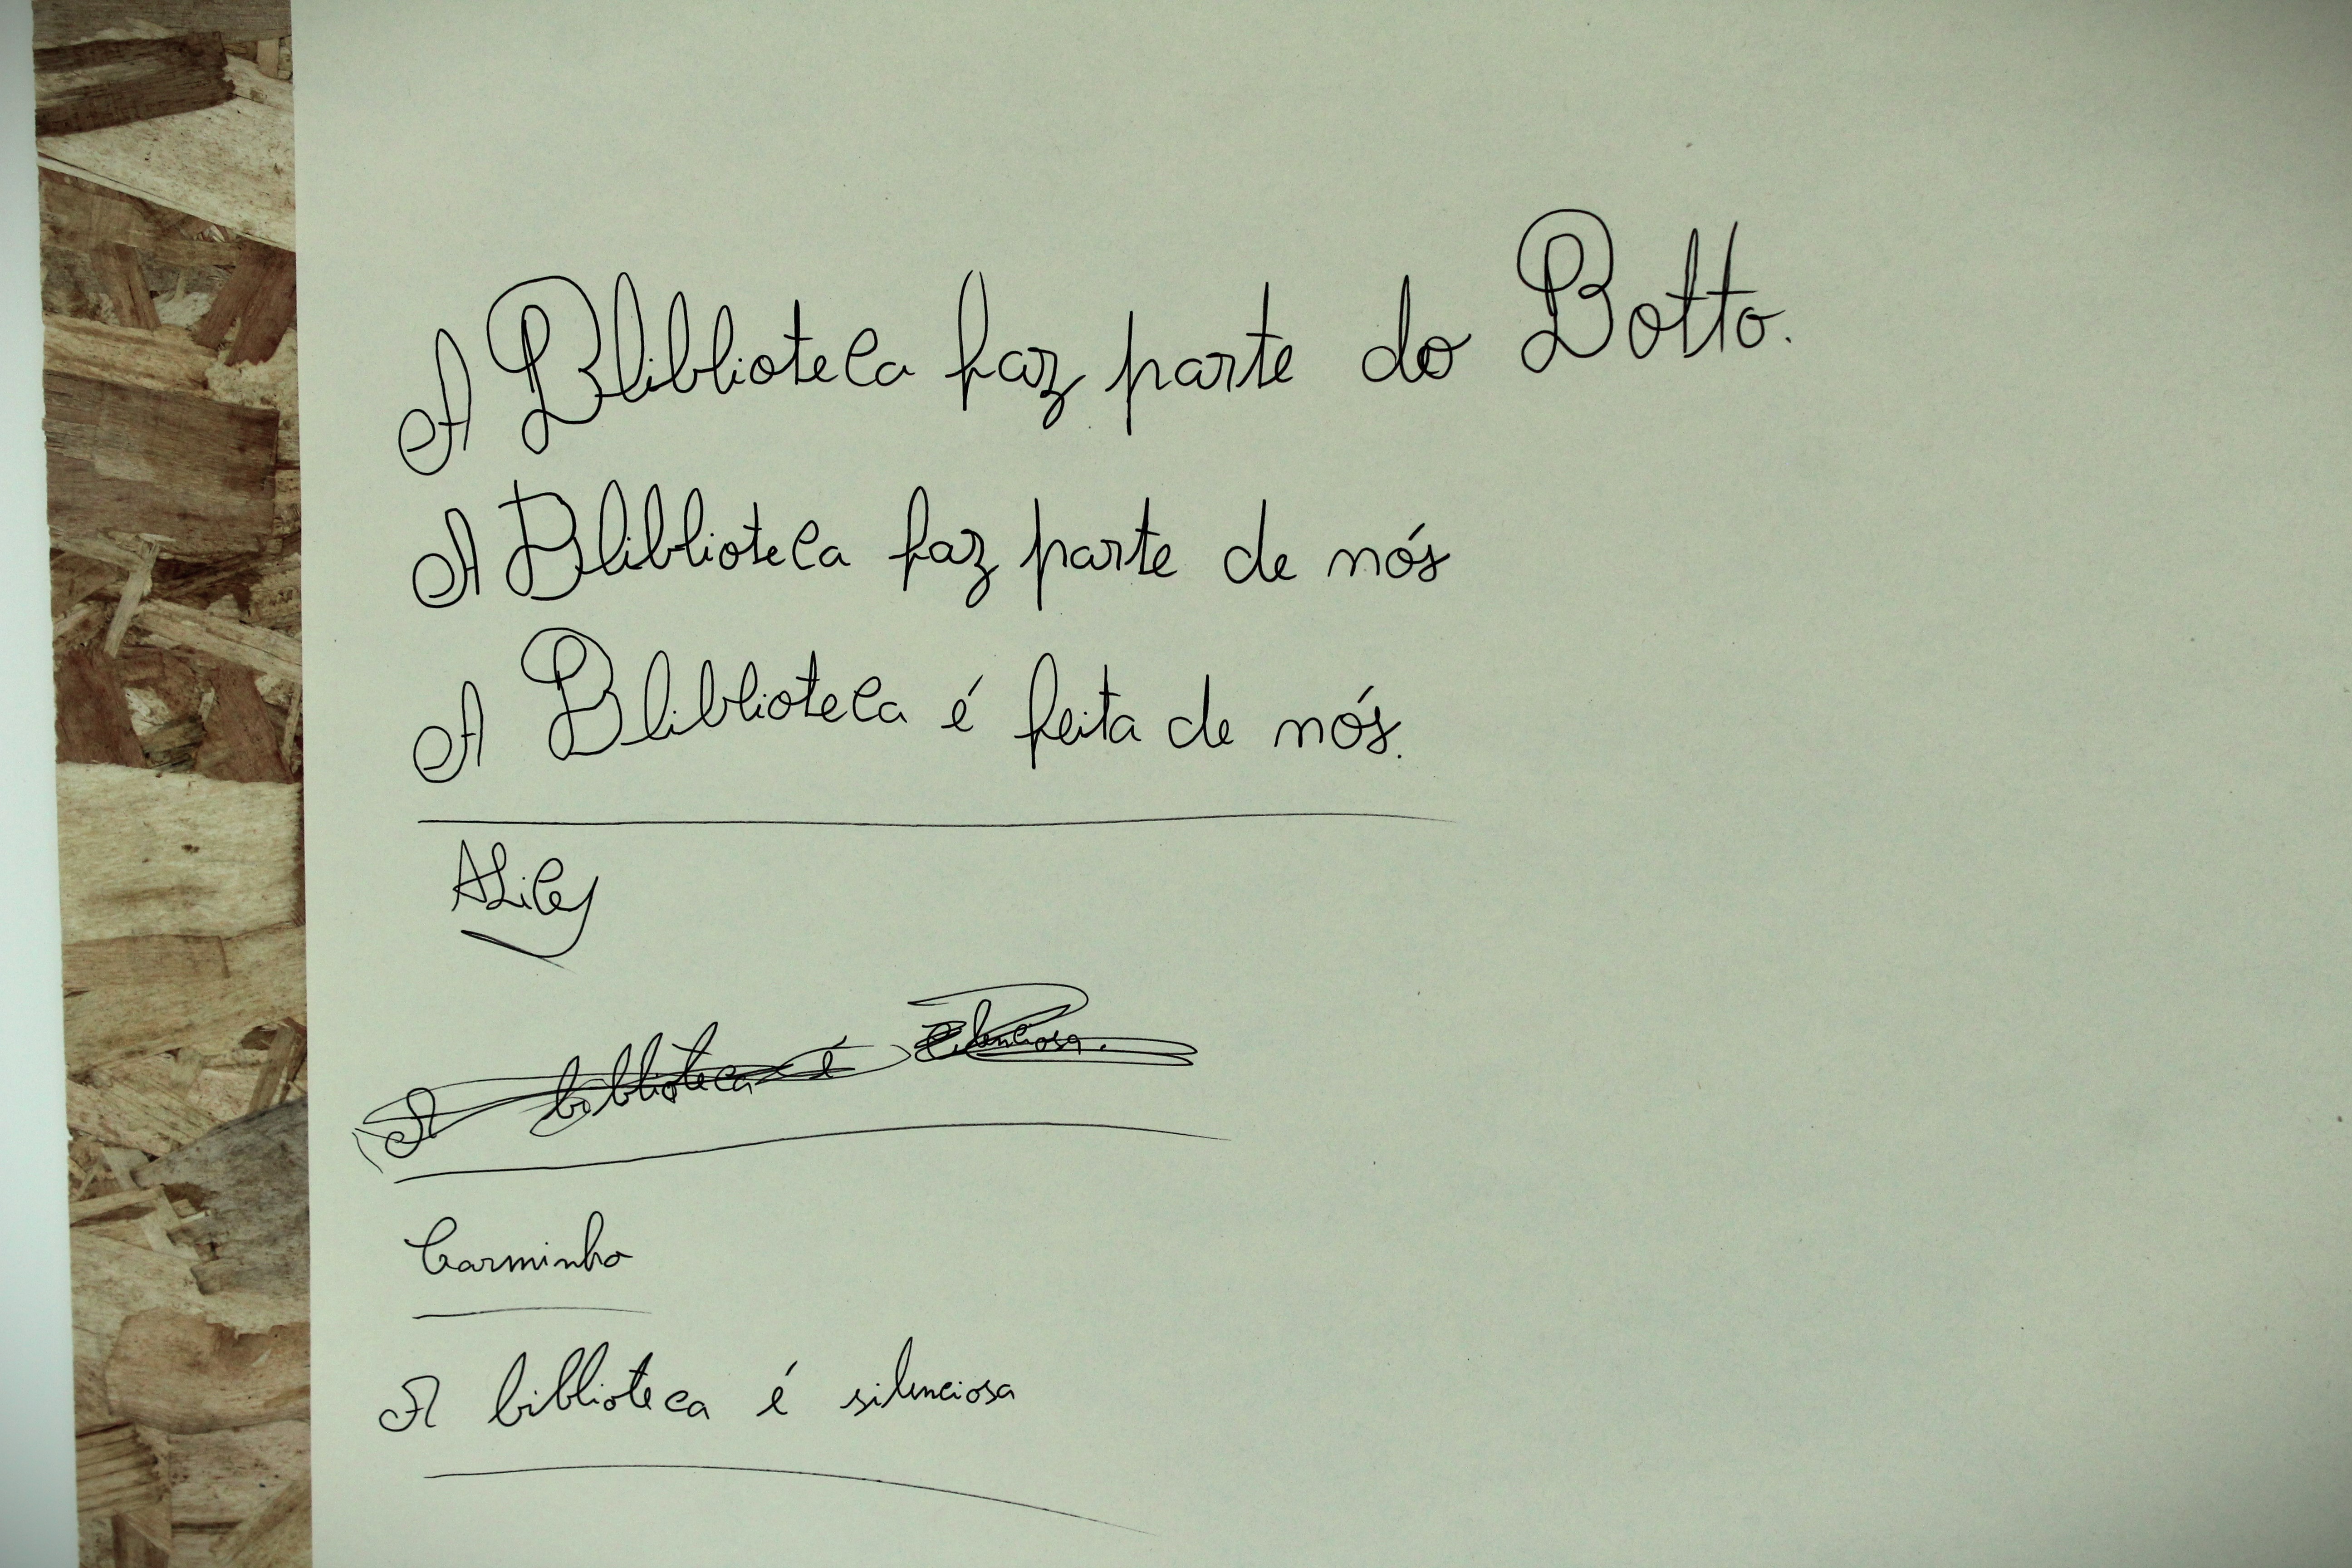 A Bliblioteca faz parte do Botto.
A Bliblioteca faz parte de nós
A Bliblioteca é feita de nós.
A biblioteca é
Carminho
A biblioteca é silenciosa